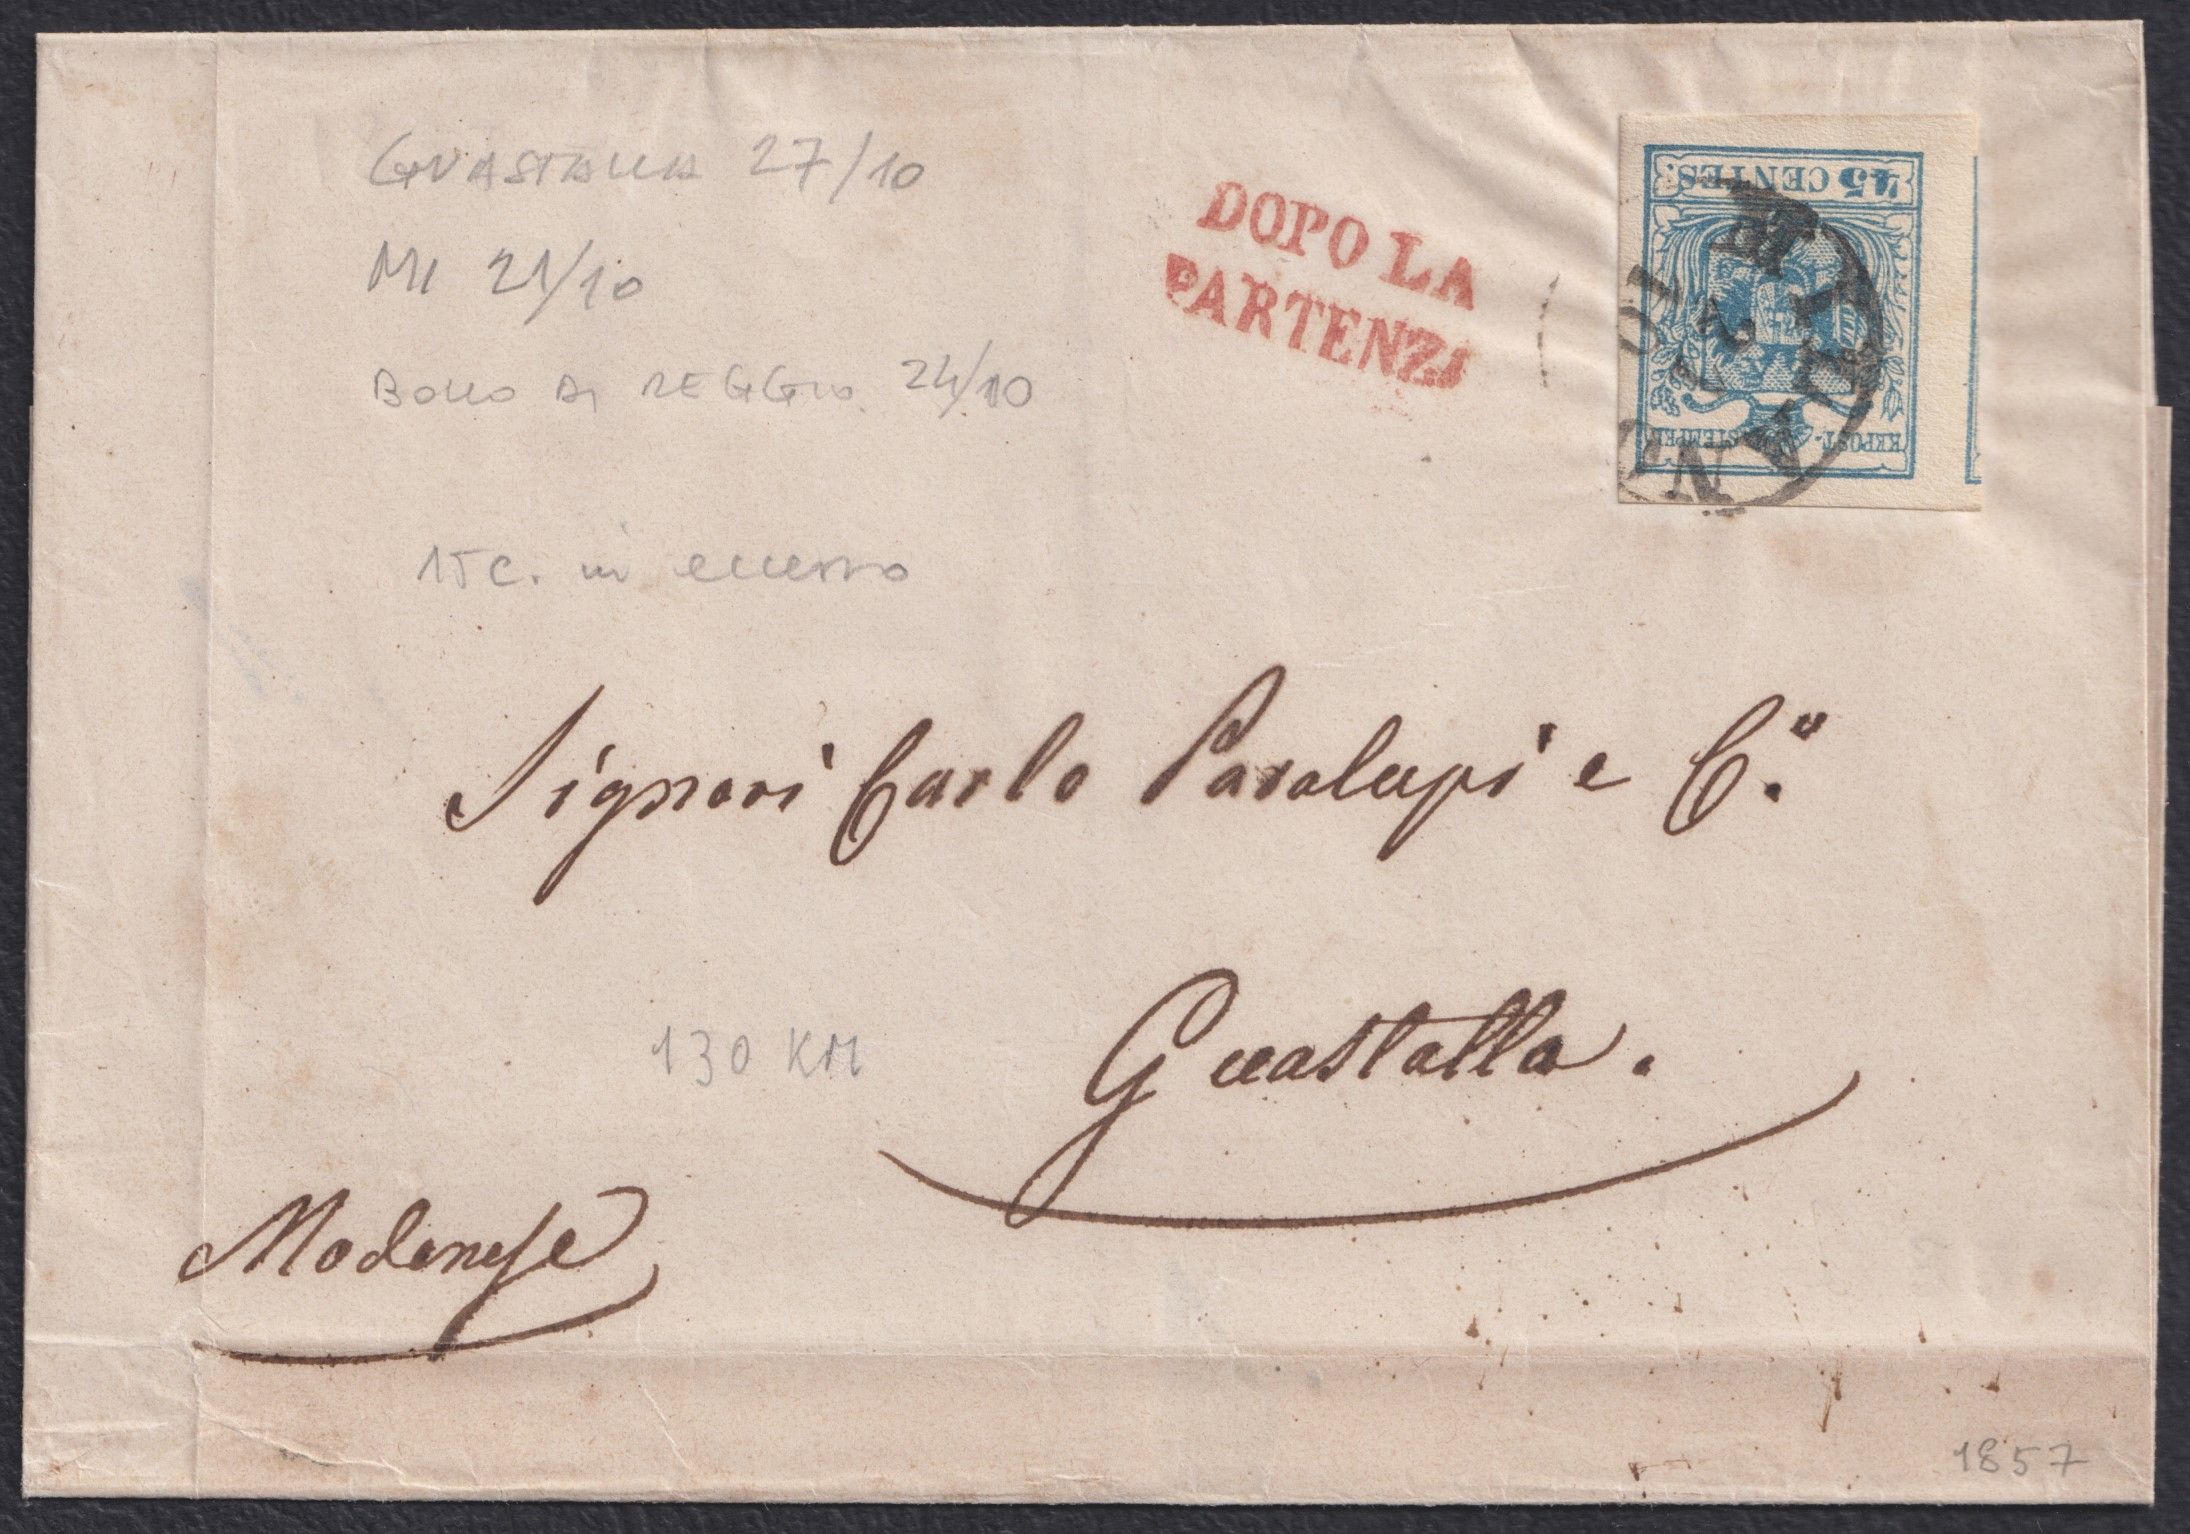 GUASTALLA 27/10
MI 21/10
BOLLO DI REGGIO 24/10
15 c. in eccesso
DOPO LA
PARTENZA
45 CENTES.
K.K.POST-STEMPEL
MILANO
21
10
Signori Carlo Paralupi e C.º
130 KM
Guastalla.
Modenese
1857